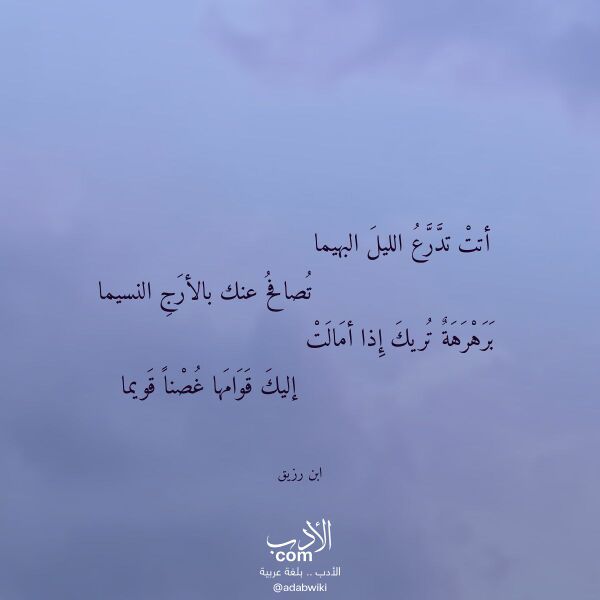 أتتْ تدَّرَّعُ الليلَ البهيما
تُصافحُ عنك بالأرَجِ النسيما
بَرَهْرَهَةٌ تُريكَ إِذا أمَالَتْ
إليكَ قَوَامَها غُصْناً قَويما
ابن رزيق
الأدب
com
الأدب .. بلغة عربية
@adabwiki